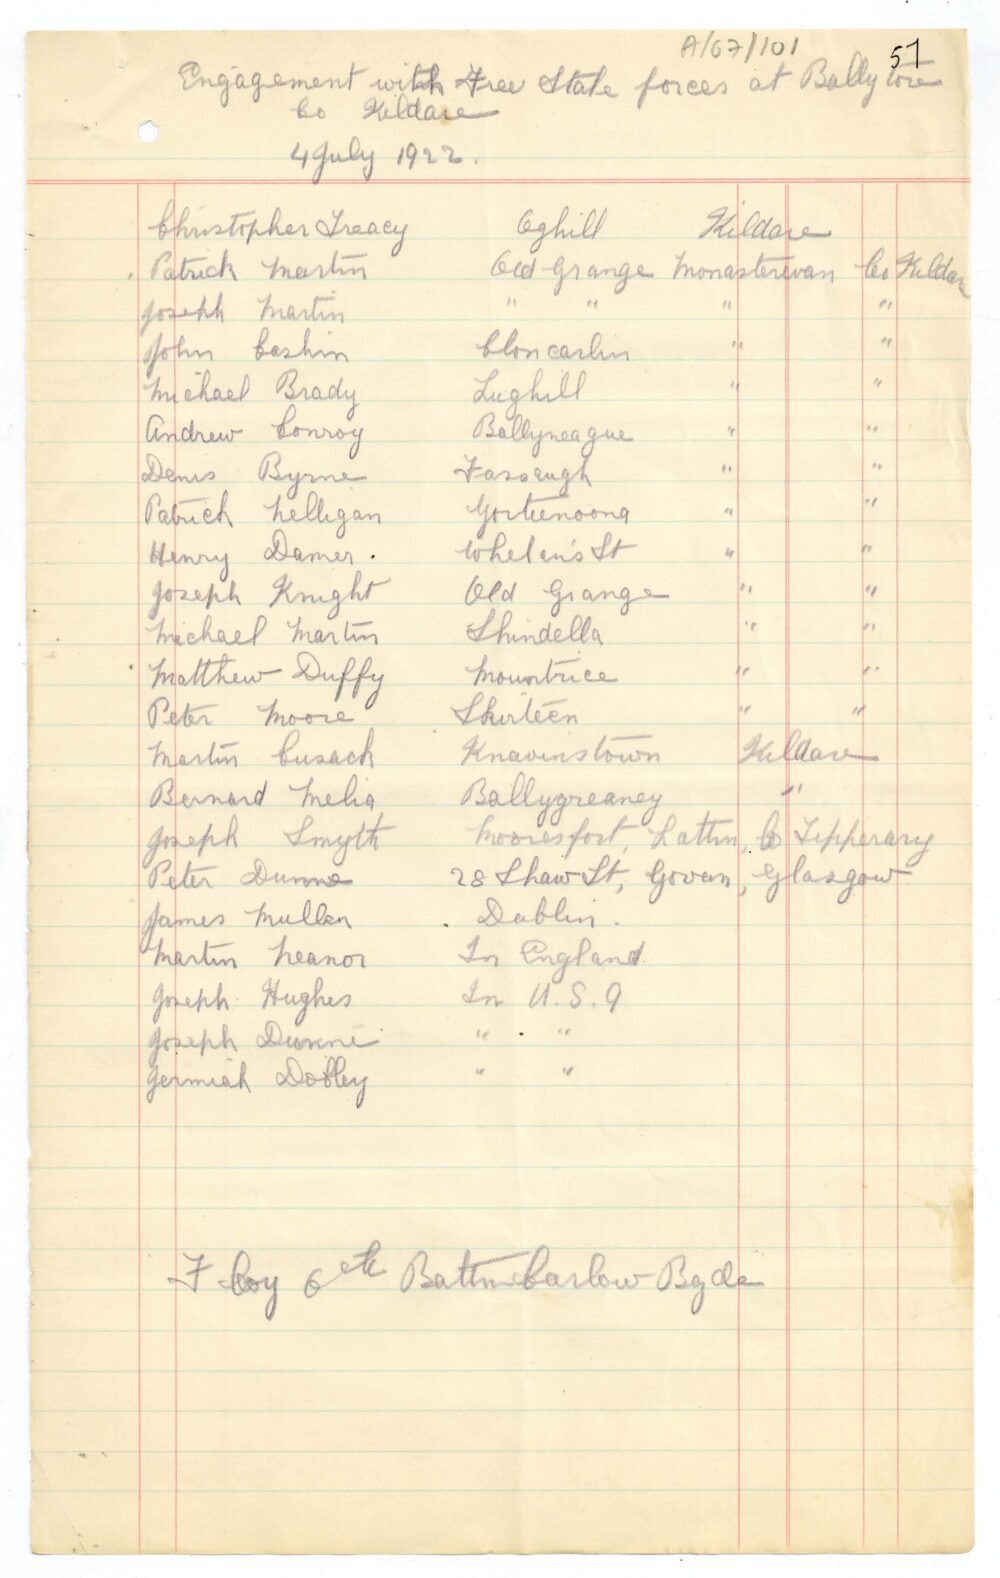 A/67/101
57
Engagement with Free State forces at Ballytore
Co Kildare
4 July 1922.
Christopher Treacy Oghill Kildare
Patrick Martin Old Grange Monasterevan Co Kildare
Joseph Martin " " " "
John Cashin Cloncarlin " "
Michael Brady Lughill " "
Andrew Conroy Ballyneague " "
Denis Byrne Fassaugh " "
Patrick Nelligan Gorteenoona " "
Henry Damer. Whelan's St " "
Joseph Knight Old Grange " "
Michael Martin Shindella " "
Matthew Duffy Mountrice " "
Peter Moore Skirteen " "
Martin Cusack Knavinstown Kildare
Bernard Melia Ballygreaney "
Joseph Smyth Mooresfort, Lattin, Co Tipperary
Peter Dunne 28 Shaw St, Govan, Glasgow
James Mullen Dublin.
Martin Neanor In England.
Joseph Hughes In U.S.A
Joseph Dunne " "
Jermiah Dobley " "
F Coy 6th Battn Carlow Bgde